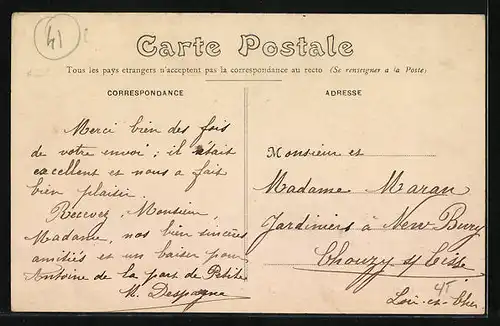 41
Carte Postale
Tous les pays etrangers n'acceptent pas la correspondance au recto (Se renseigner a la Poste)
CORRESPONDANCE
Merci bien des fois
de votre envoi ; il était
excellent et nous a fait
bien plaisir.
Recevez, Monsieur,
Madame, nos bien sincères
amitiés et un baiser pour
Antoine de la part de Petite
M. Despagne
ADRESSE
Monsieur et
Madame Maran
Jardiniers à New-Bury
Chouzy s/ Cisse
Loir-et-Cher